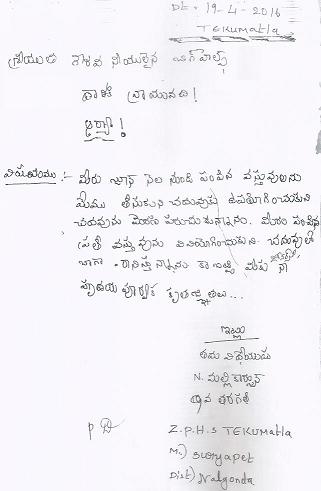 Dt:- 19-4-2016
TEKUMATLA
శ్రీయుత గౌరవ నీయులైన బిగ్ హెల్ప్
వారికి వ్రాయునది!
ఆర్యా!
విషయము :- మీరు జూన్ నెల నుండి పంపిన వస్తువులను
మేము తీసుకుని చదువుకు ఉపయోగించుకుని
చదువును మెరుగు పరుచుకున్నాము. మీరు పంపిన
ప్రతీ వస్తువును వినియోగించుకుని చదువులో
బాగా రాణిస్తున్నాము కాబట్టి మీకు నా
హృదయ పూర్వక కృతజ్ఞతలు...
ఇట్లు
తమ విధేయుడు
N. మల్లికార్జున్
తరగతి
Z.P.H.S TEKUMatla
M:) Suryapet
Dist) Nalgonda